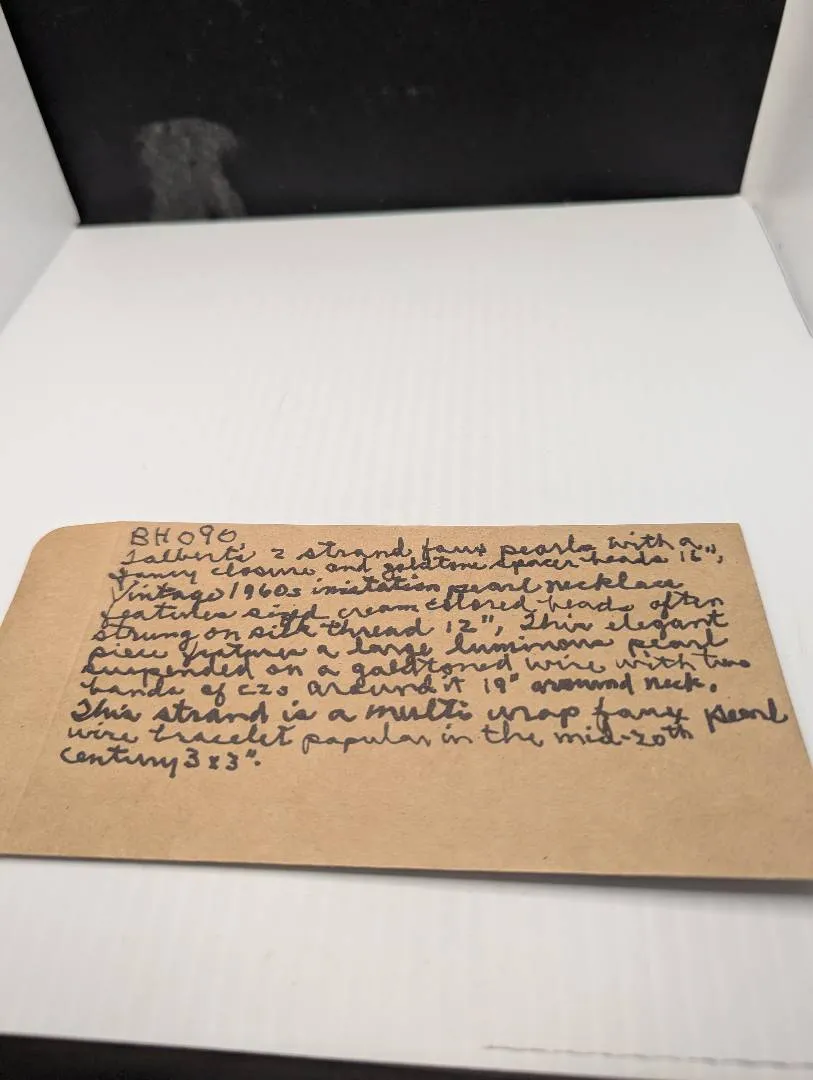 BH090.
Talberts 2 strand faux pearls with a
fancy closure and goldtone spacer beads 16",
Vintage 1960s imitation pearl necklace
features sized cream colored beads often
strung on silk thread 12", This elegant
piece features a large luminous pearl
suspended on a goldtoned wire with two
bands of czs around it 19" around neck.
This strand is a multi wrap faux pearl
wire bracelet popular in the mid-20th
century 3x3".